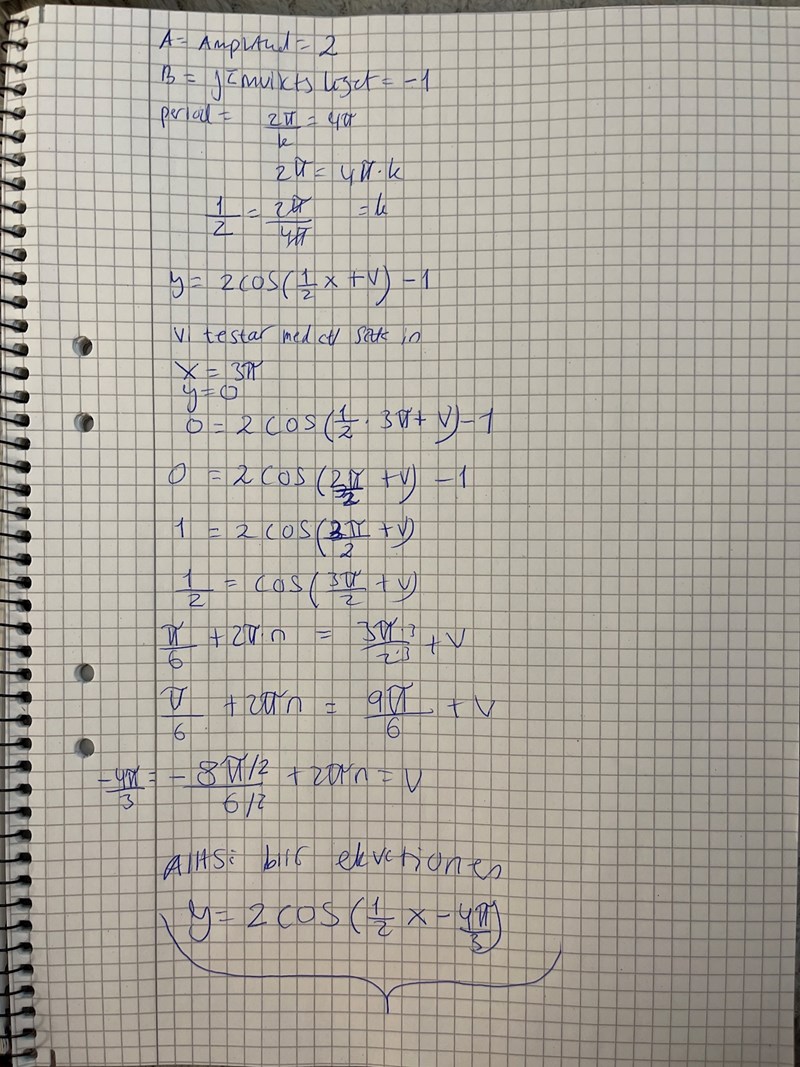 A = Amplitud = 2
B = jämvikts läget = -1
period = 2π/k = 4π
2π = 4π·k
1/2 = 2π/4π = k
y = 2cos(1/2 x + v) - 1
Vi testar med att sätta in
x = 3π
y = 0
0 = 2cos(1/2 · 3π + v) - 1
0 = 2cos(3π/2 + v) - 1
1 = 2cos(3π/2 + v)
1/2 = cos(3π/2 + v)
π/6 + 2π·n = 3π·3/2·3 + v
π/6 + 2πn = 9π/6 + v
-4π/3 = -8π/2/6/2 + 2πn = v
Alltså blir ekvationen
y = 2cos(1/2 x - 4π/3)